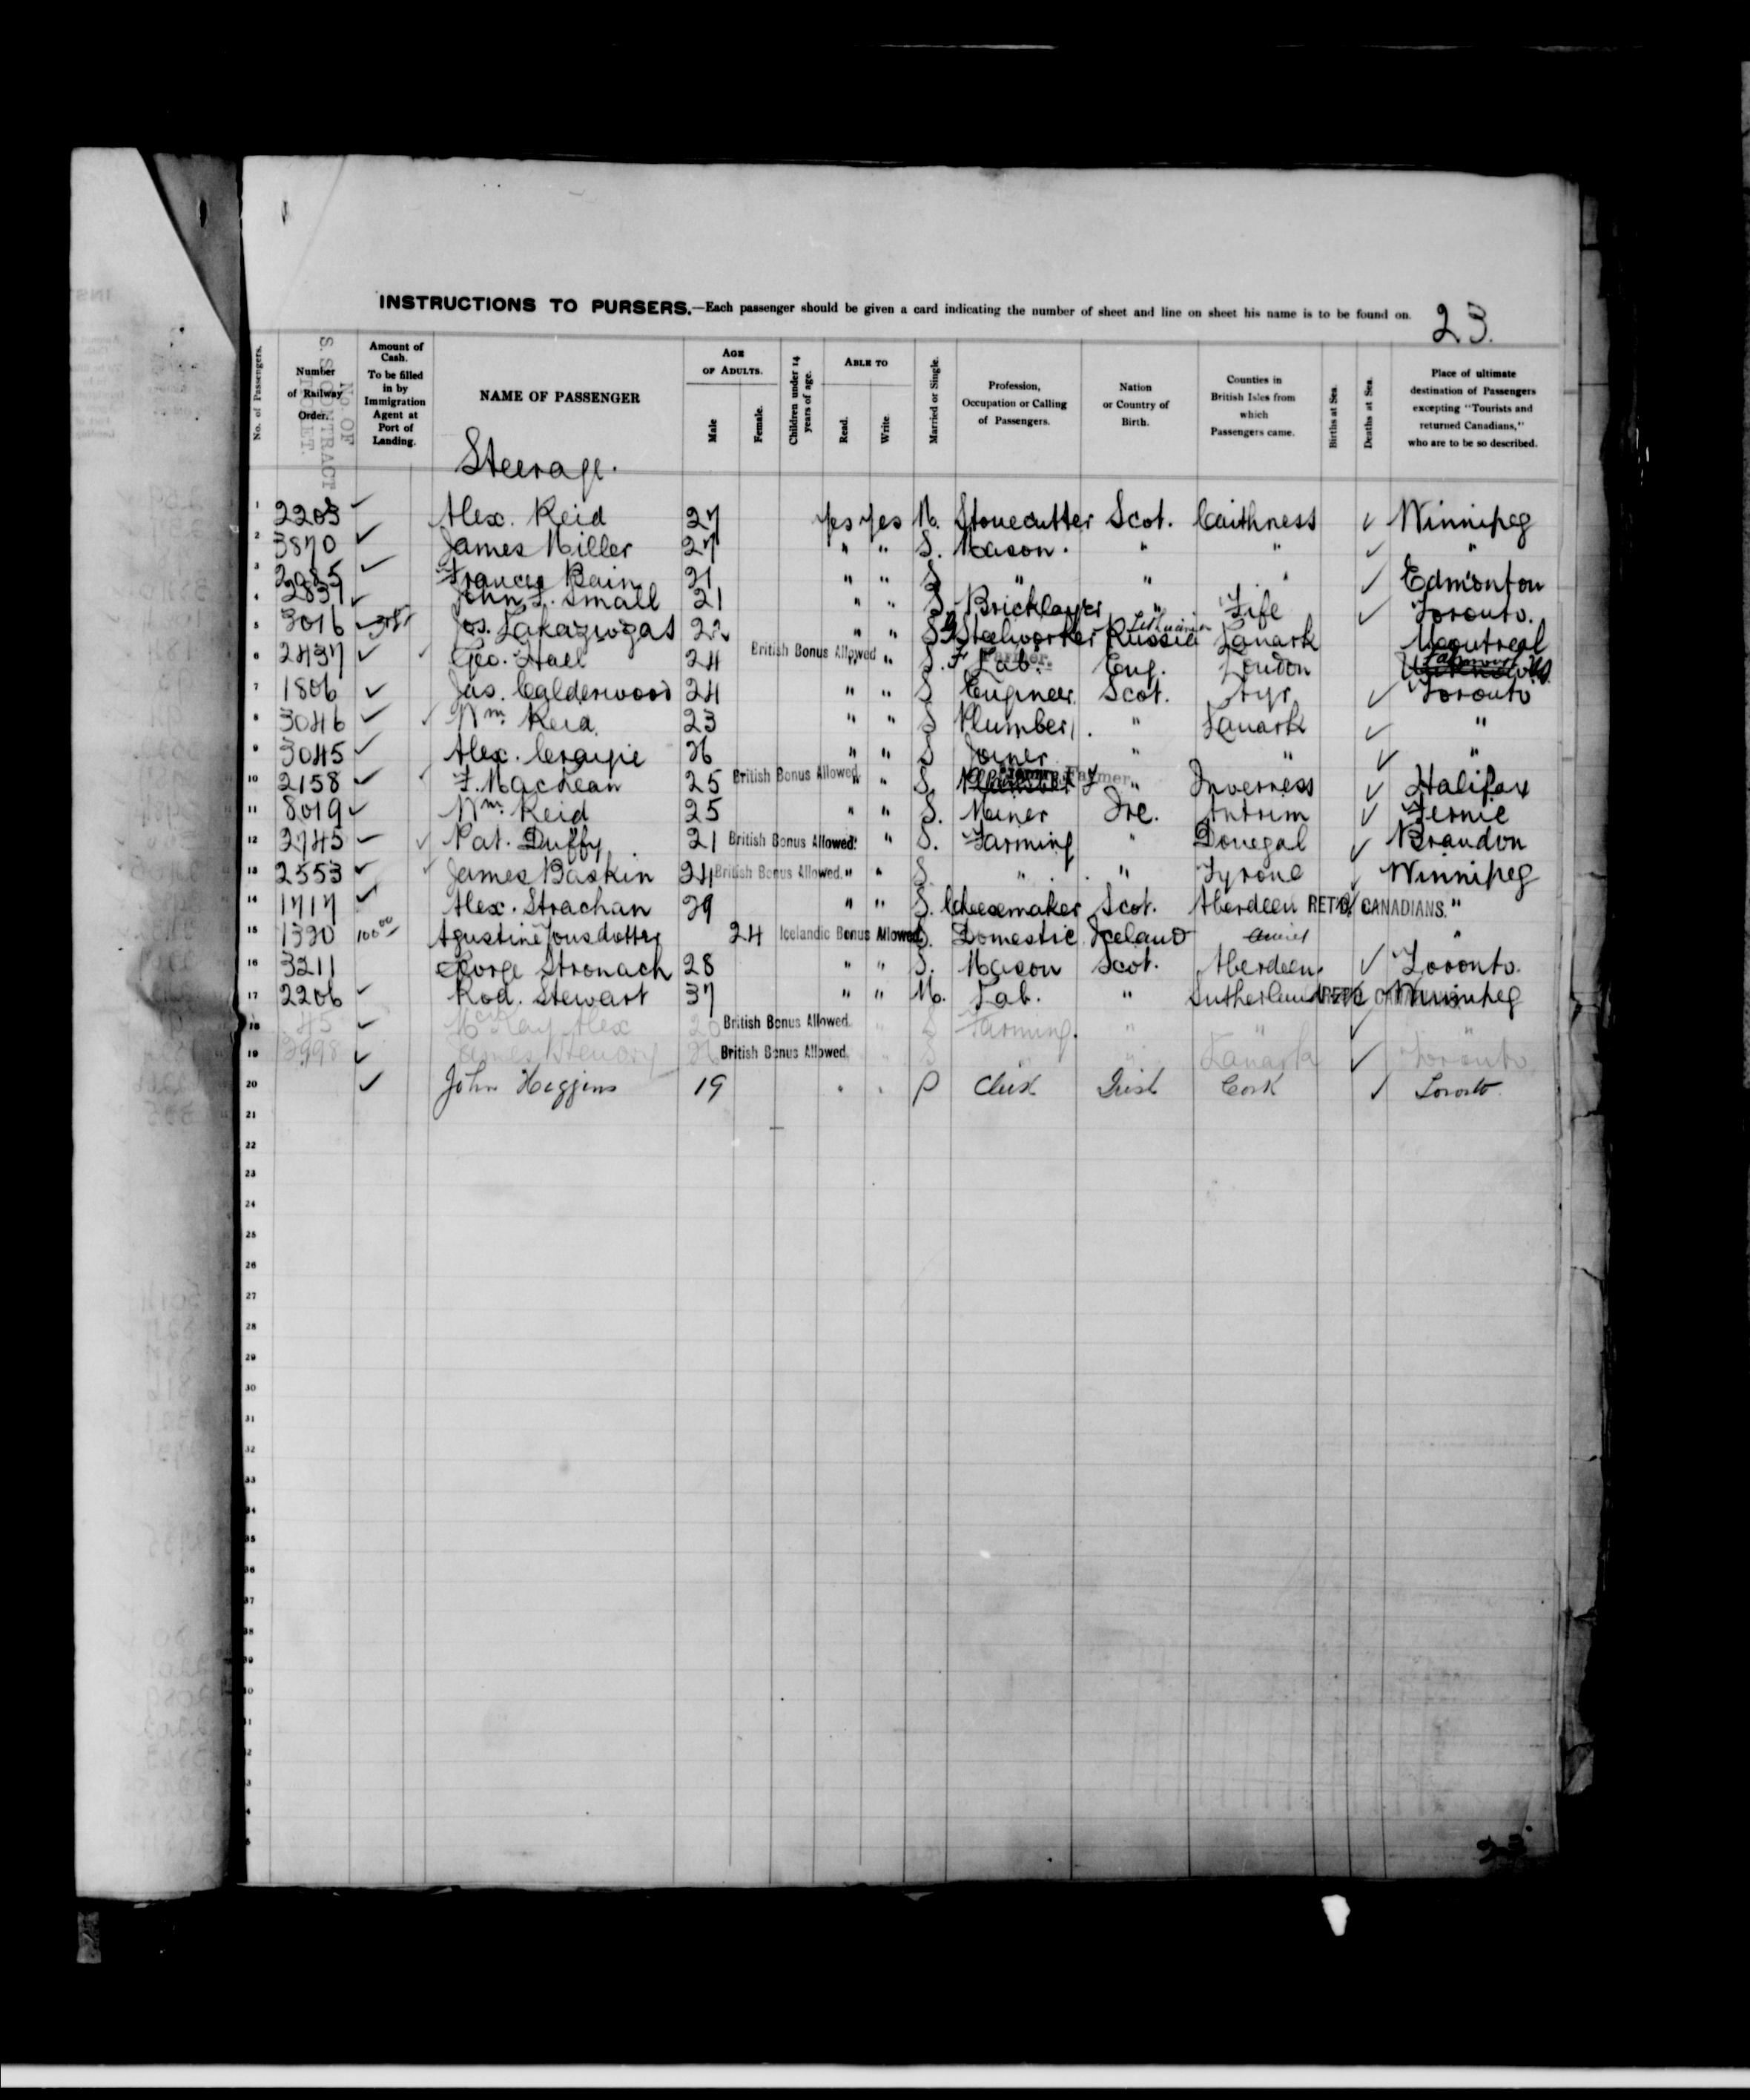 INSTRUCTIONS TO PURSERS.—Each passenger should be given a card indicating the number of sheet and line on sheet his name is to be found on. 23.
No. of Passengers. Number of Railway Order. Amount of Cash. To be filled in by Immigration Agent at Port of Landing. NAME OF PASSENGER AGE OF ADULTS. Male Female. Children under 14 years of age. ABLE TO Read. Write Married or Single. Profession, Occupation or Calling of Passengers. Nation or Country of Birth. Counties in British Isles from which Passengers came. Births at Sea. Deaths at Sea. Place of ultimate destination of Passengers excepting "Tourists and returned Canadians," who are to be so described.
No. OF S. S. CONTRACT TICKET.
Steerage.
1 2203 ✓ Alex. Reid 27 Yes Yes M. Stonecutter Scot. Caithness ✓ Winnipeg
2 3870 ✓ James Miller 27 " " S. Mason. " " ✓ "
3 2085 ✓ Frances Bain 21 " " S " " " ✓ Edmonton
4 2837 ✓ John L. Small 21 " " S. Bricklayer " Fife ✓ Toronto.
5 3016 ✓ Jos. 22 " " S Steelworker Russia Lithuanian Lanark Montreal
6 2437 ✓ ✓ Geo. Hall 24 British Bonus Allowed " " S. F Lab. Farmer. Eng. London
7 1806 ✓ Jas. Calderwood 24 " " S Engineer Scot. Ayr. ✓ Toronto
8 3046 ✓ ✓ Wm. Reid 23 " " S Plumber, " Lanark ✓ "
9 3045 ✓ Alex. Craigie 26 " " S Joiner " " ✓ "
10 2158 ✓ ✓ F. MacLean 25 British Bonus Allowed. " " S. Farmer " Inverness ✓ Halifax
11 8019 ✓ Wm. Reid 25 " " S. Miner Ire. Antrim ✓ Fernie
12 2745 ✓ ✓ Pat. Duffy 21 British Bonus Allowed. " " S. Farming " Donegal ✓ Brandon
13 2553 ✓ ✓ James Baskin 24 British Bonus Allowed. " " S. " " Tyrone ✓ Winnipeg
14 1717 ✓ Alex. Strachan 29 " " S. Cheesemaker Scot. Aberdeen RET'D. CANADIANS. "
15 1390 100.00 Agustine Jonsdotter 24 Icelandic Bonus Allowed. S. Domestic Iceland "
16 3211 George Stronach 28 " " S. Mason Scot. Aberdeen ✓ Toronto.
17 2206 ✓ Rod. Stewart 37 " " M. Lab. " Sutherland Winnipeg
18 ✓ McKay Alex 20 British Bonus Allowed. " S Farming. " " ✓ "
19 3998 ✓ James Hendry British Bonus Allowed. S " " Lanark ✓ Toronto
20 ✓ John Higgins 19 " " S Clerk Irish Cork ✓ Toronto
21
22
23
24
25
26
27
28
29
30
31
32
33
34
35
36
37
38
39
40
23